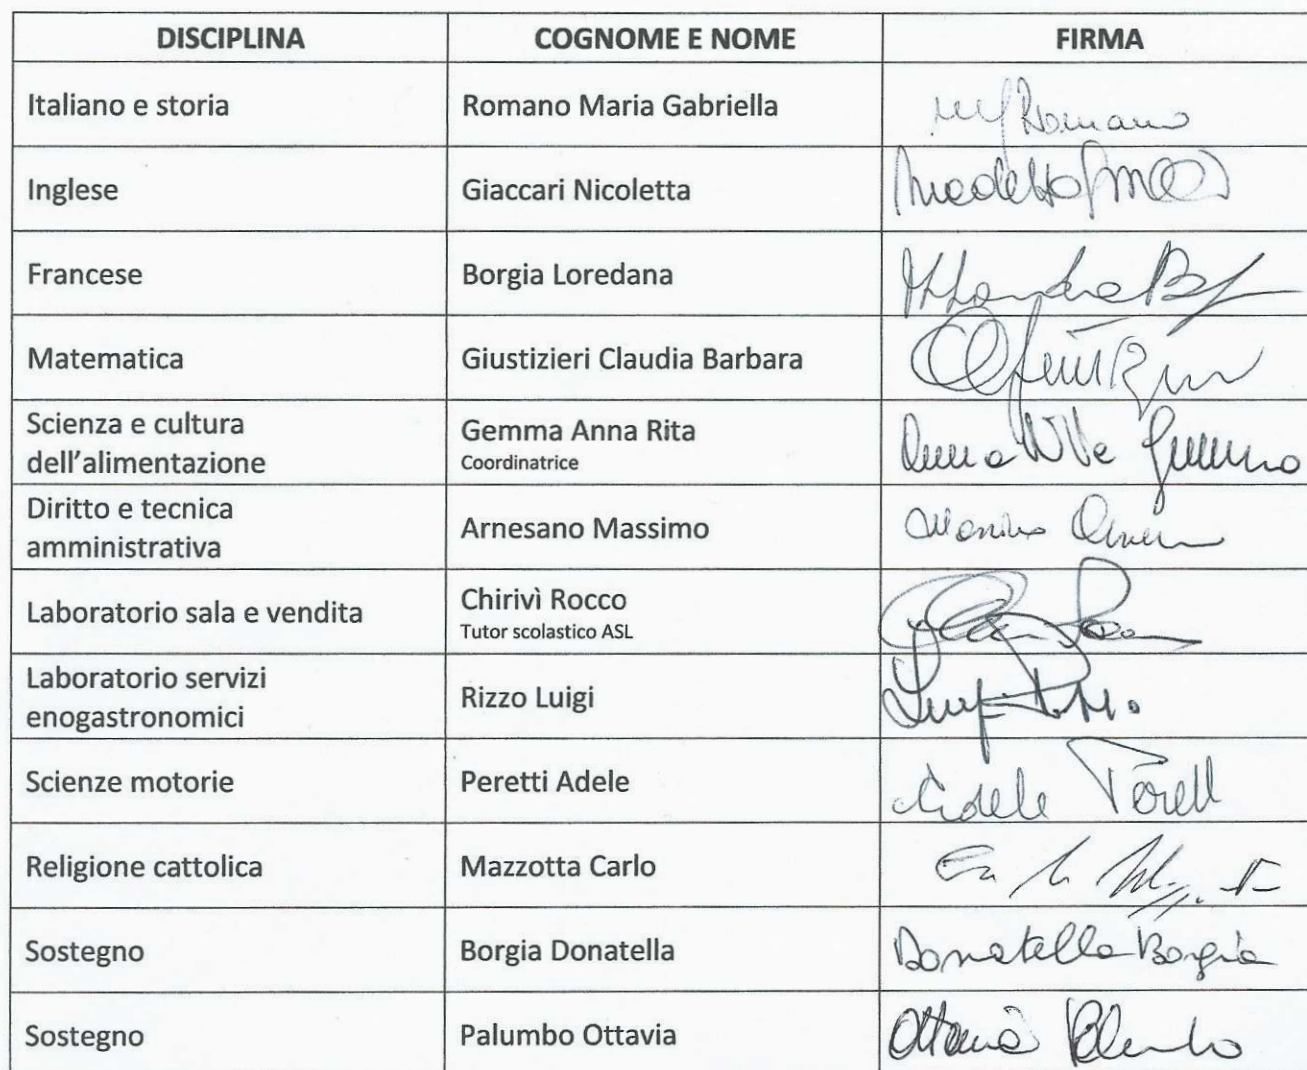 DISCIPLINA COGNOME E NOME FIRMA
Italiano e storia Romano Maria Gabriella Romano
Inglese Giaccari Nicoletta
Francese Borgia Loredana
Matematica Giustizieri Claudia Barbara
Scienza e cultura
dell'alimentazione
Gemma Anna Rita
Coordinatrice
Anna Rita Gemma
Diritto e tecnica
amministrativa
Arnesano Massimo
Laboratorio sala e vendita
Chirivì Rocco
Tutor scolastico ASL
Laboratorio servizi
enogastronomici
Rizzo Luigi
Scienze motorie Peretti Adele Adele
Religione cattolica Mazzotta Carlo
Sostegno Borgia Donatella Donatella Borgia
Sostegno Palumbo Ottavia Ottavia Palumbo